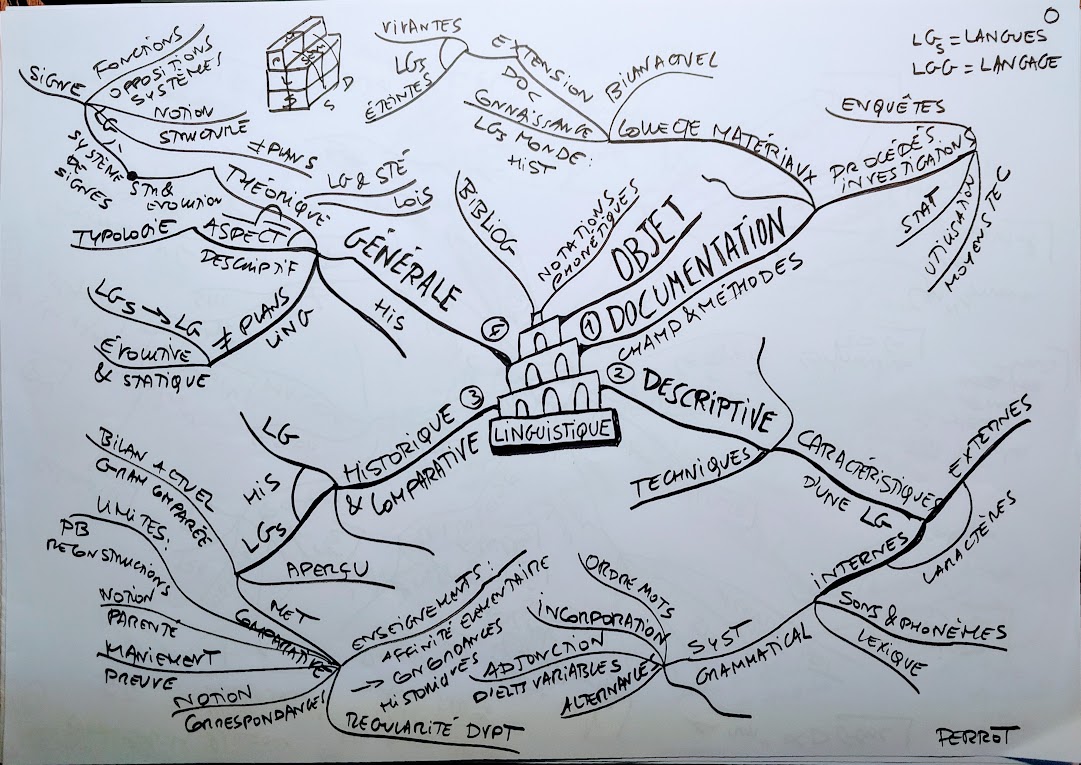 O
LGs = LANGUES
LGG = LANGAGE
LINGUISTIQUE
BIBLIOG
NOTATIONS
PHONÉTIQUES
① OBJET
DOCUMENTATION
CHAMP & MÉTHODES
COLLECTE MATÉRIAUX
BILAN ACTUEL
EXTENSION
DOC
VIVANTES
LGs
ÉTEINTES
CONNAISSANCE
LGs MONDE:
HIST
PROCÉDÉS
INVESTIGATIONS
ENQUÊTES
STAT
UTILISATION
MOYENS TEC
② DESCRIPTIVE
TECHNIQUES
CARACTÉRISTIQUES
D'UNE LG
EXTERNES
CARACTÈRES
INTERNES
SONS & PHONÈMES
LEXIQUE
SYST
GRAMMATICAL
ORDRE MOTS
INCORPORATION
ADJONCTION
D'ELTS VARIABLES
ALTERNANCES
③ HISTORIQUE
& COMPARATIVE
LG
HIS
LGs
APERÇU
BILAN ACTUEL
GRAM COMPARÉE
MET
COMPARATIVE
LIMITES:
PB
RECONSTRUCTIONS
NOTION
PARENTÉ
MANIEMENT
PREUVE
NOTION
CORRESPONDANCES
REGULARITÉ DVPT
ENSEIGNEMENTS:
AFFINITÉ ELEMENTAIRE
→ CONCORDANCES
HISTORIQUES
GÉNÉRALE
HIS
ASPECT
THÉORIQUE
DESCRIPTIF
LG & STÉ
LOIS
TYPOLOGIE
≠ PLANS
LING
LGs → LG
ÉVOLUTIVE
& STATIQUE
≠ PLANS
ÉVOLUTION
SYSTÈME
DE
SIGNES
SIGNE
FONCTIONS
OPPOSITIONS
SYSTÈMES
NOTION
STRUCTURE
S
D
S
PERROT